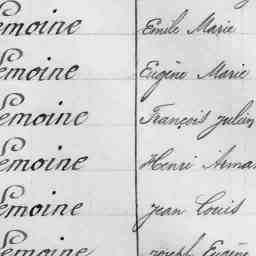 Lemoine Emile Marie
Lemoine Eugène Marie
Lemoine François Julien
Lemoine Henri Arma
Lemoine Jean Louis
Lemoine Joseph Eugène